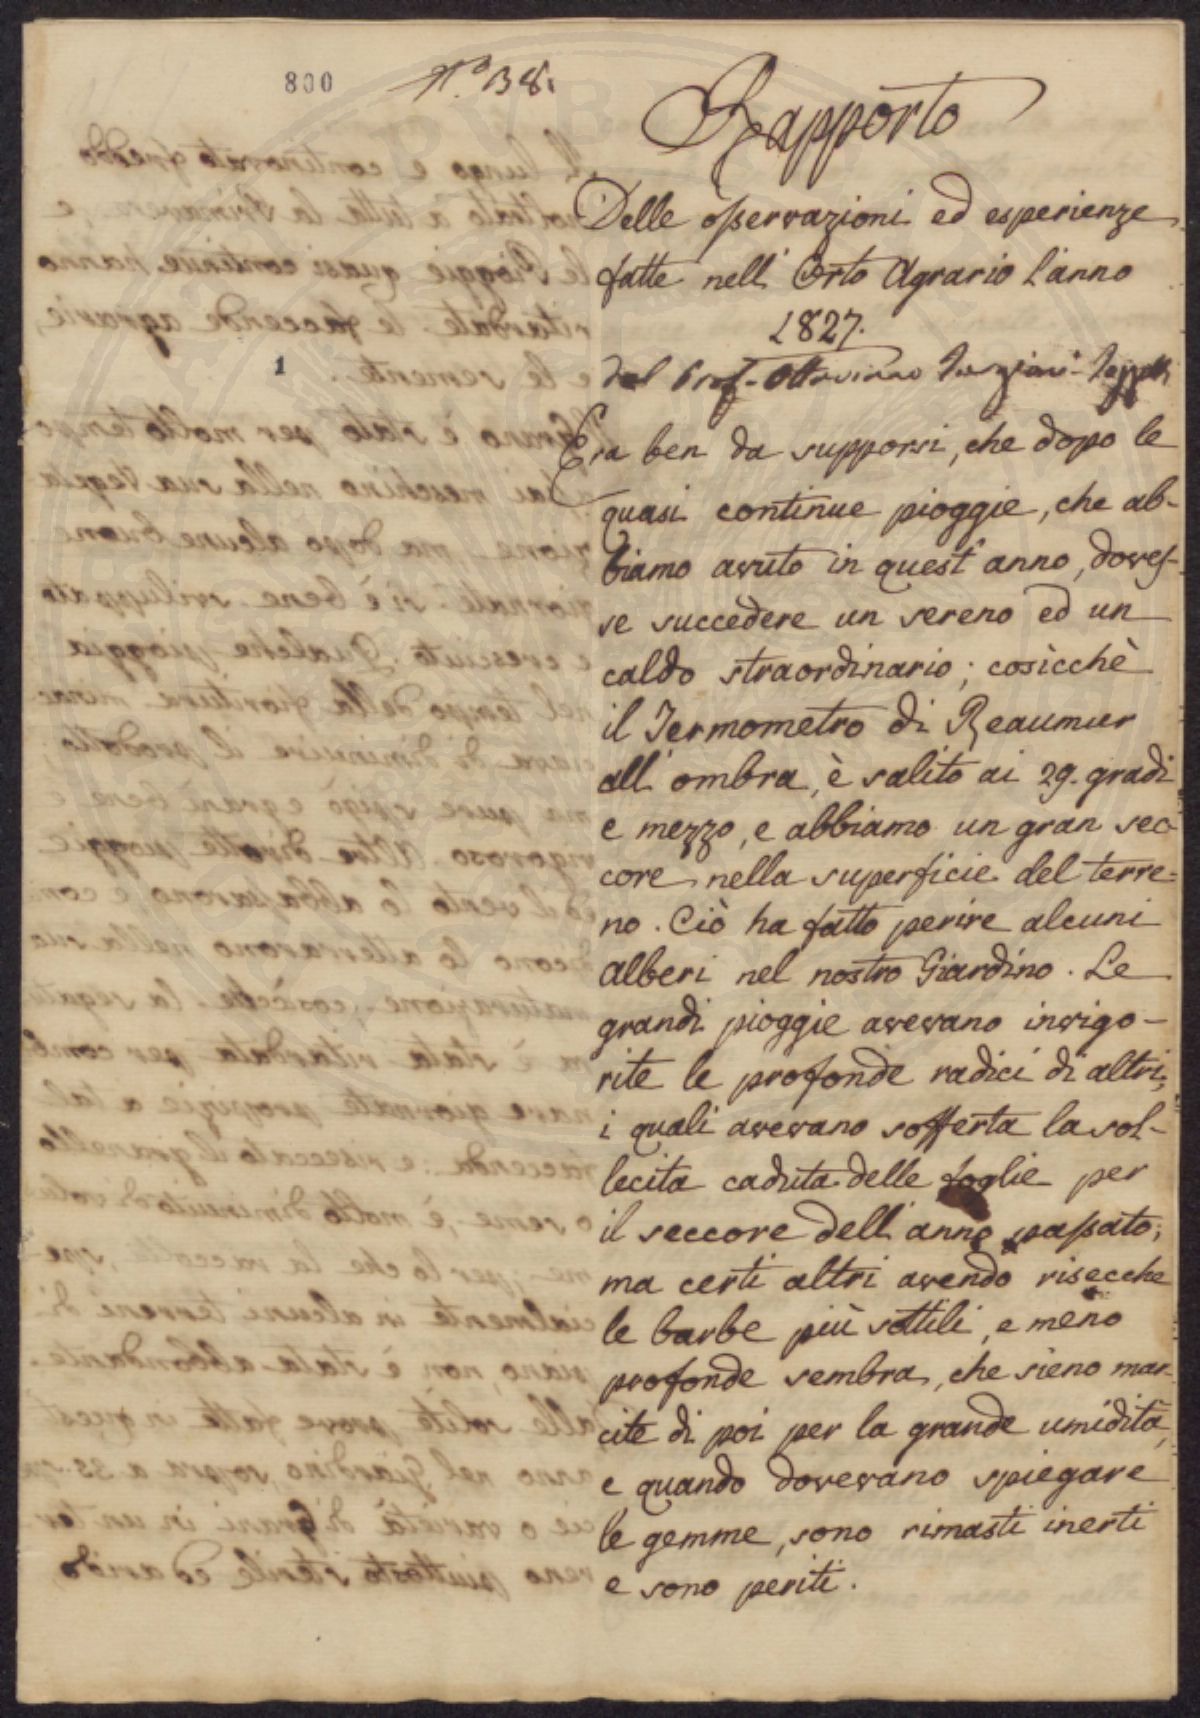 800
N.° 138.
Rapporto
Delle osservazioni ed esperienze
fatte nell' Orto Agrario l'anno
1827.
dal Prof. Ottaviano Targioni-Tozzetti
Era ben da supporsi, che dopo le
quasi continue pioggie, che ab-
biamo avuto in quest'anno, doves-
se succedere un sereno ed un
caldo straordinario; cosicchè
il Termometro di Reaumur
all'ombra, è salito ai 29. gradi
e mezzo, e abbiamo un gran sec-
core nella superficie del terre=
no. Ciò ha fatto perire alcuni
alberi nel nostro Giardino. Le
grandi pioggie avevano invigo-
rite le profonde radici di altri,
i quali avevano sofferta la sol-
lecita caduta delle foglie per
il seccore dell'anno passato;
ma certi altri avendo risecche
le barbe più sottili, e meno
profonde sembra, che sieno mar-
cite di poi per la grande umidità,
e quando dovevano spiegare
le gemme, sono rimasti inerti
e sono periti.
1